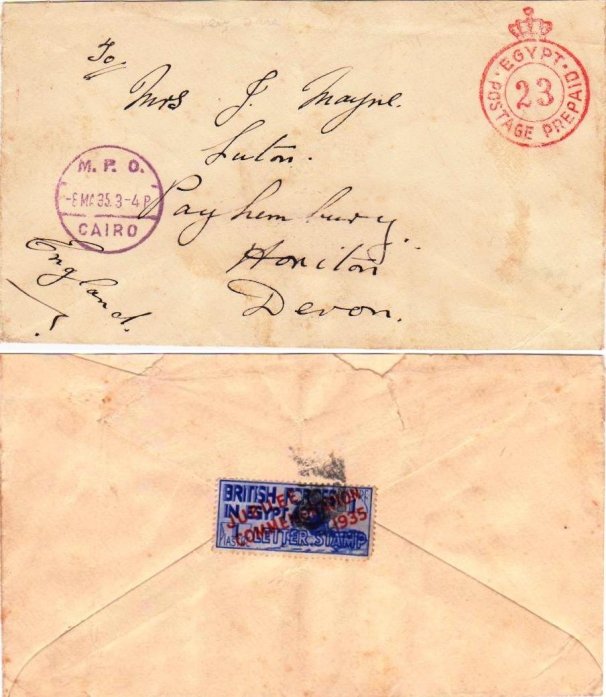 To/
Mrs J. Mayne.
Luton.
Payhembury.
Honiton
Devon.
England.
EGYPT
POSTAGE PREPAID
23
M.P.O.
-6 MA 35. 3-4 P
CAIRO
BRITISH
IN EGYPT
JUBILEE
COMMEMORATION
1935
LETTER STAMP